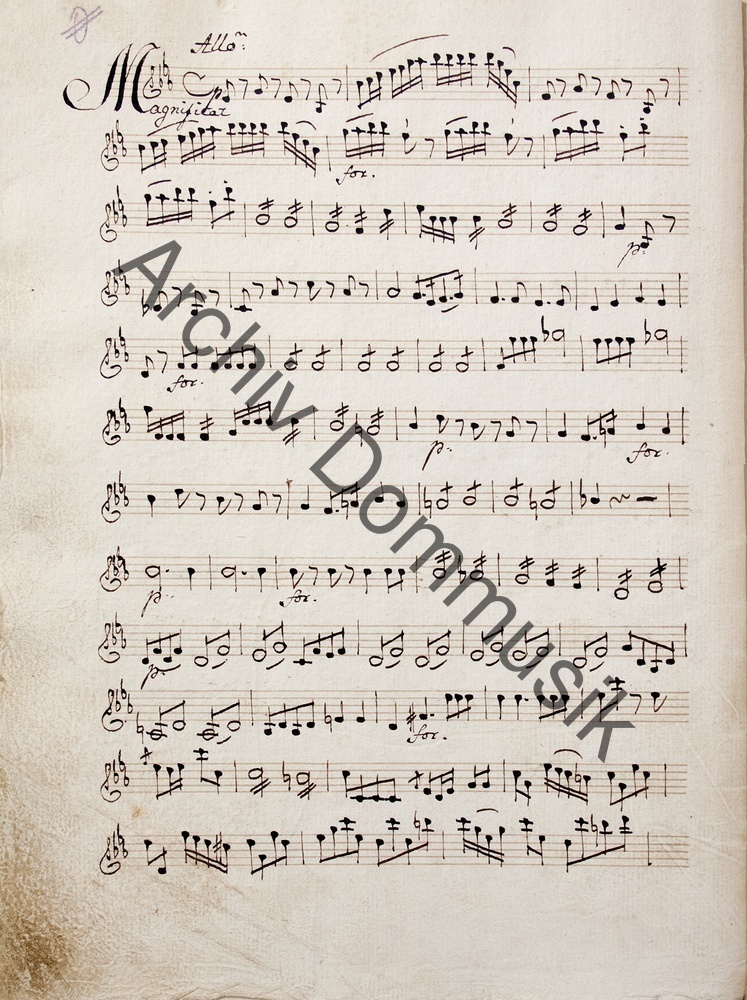 Allo:
Magnificat
p
for.
p:
for.
p:
for.
p:
for.
p:
for.
Archiv Dommusik